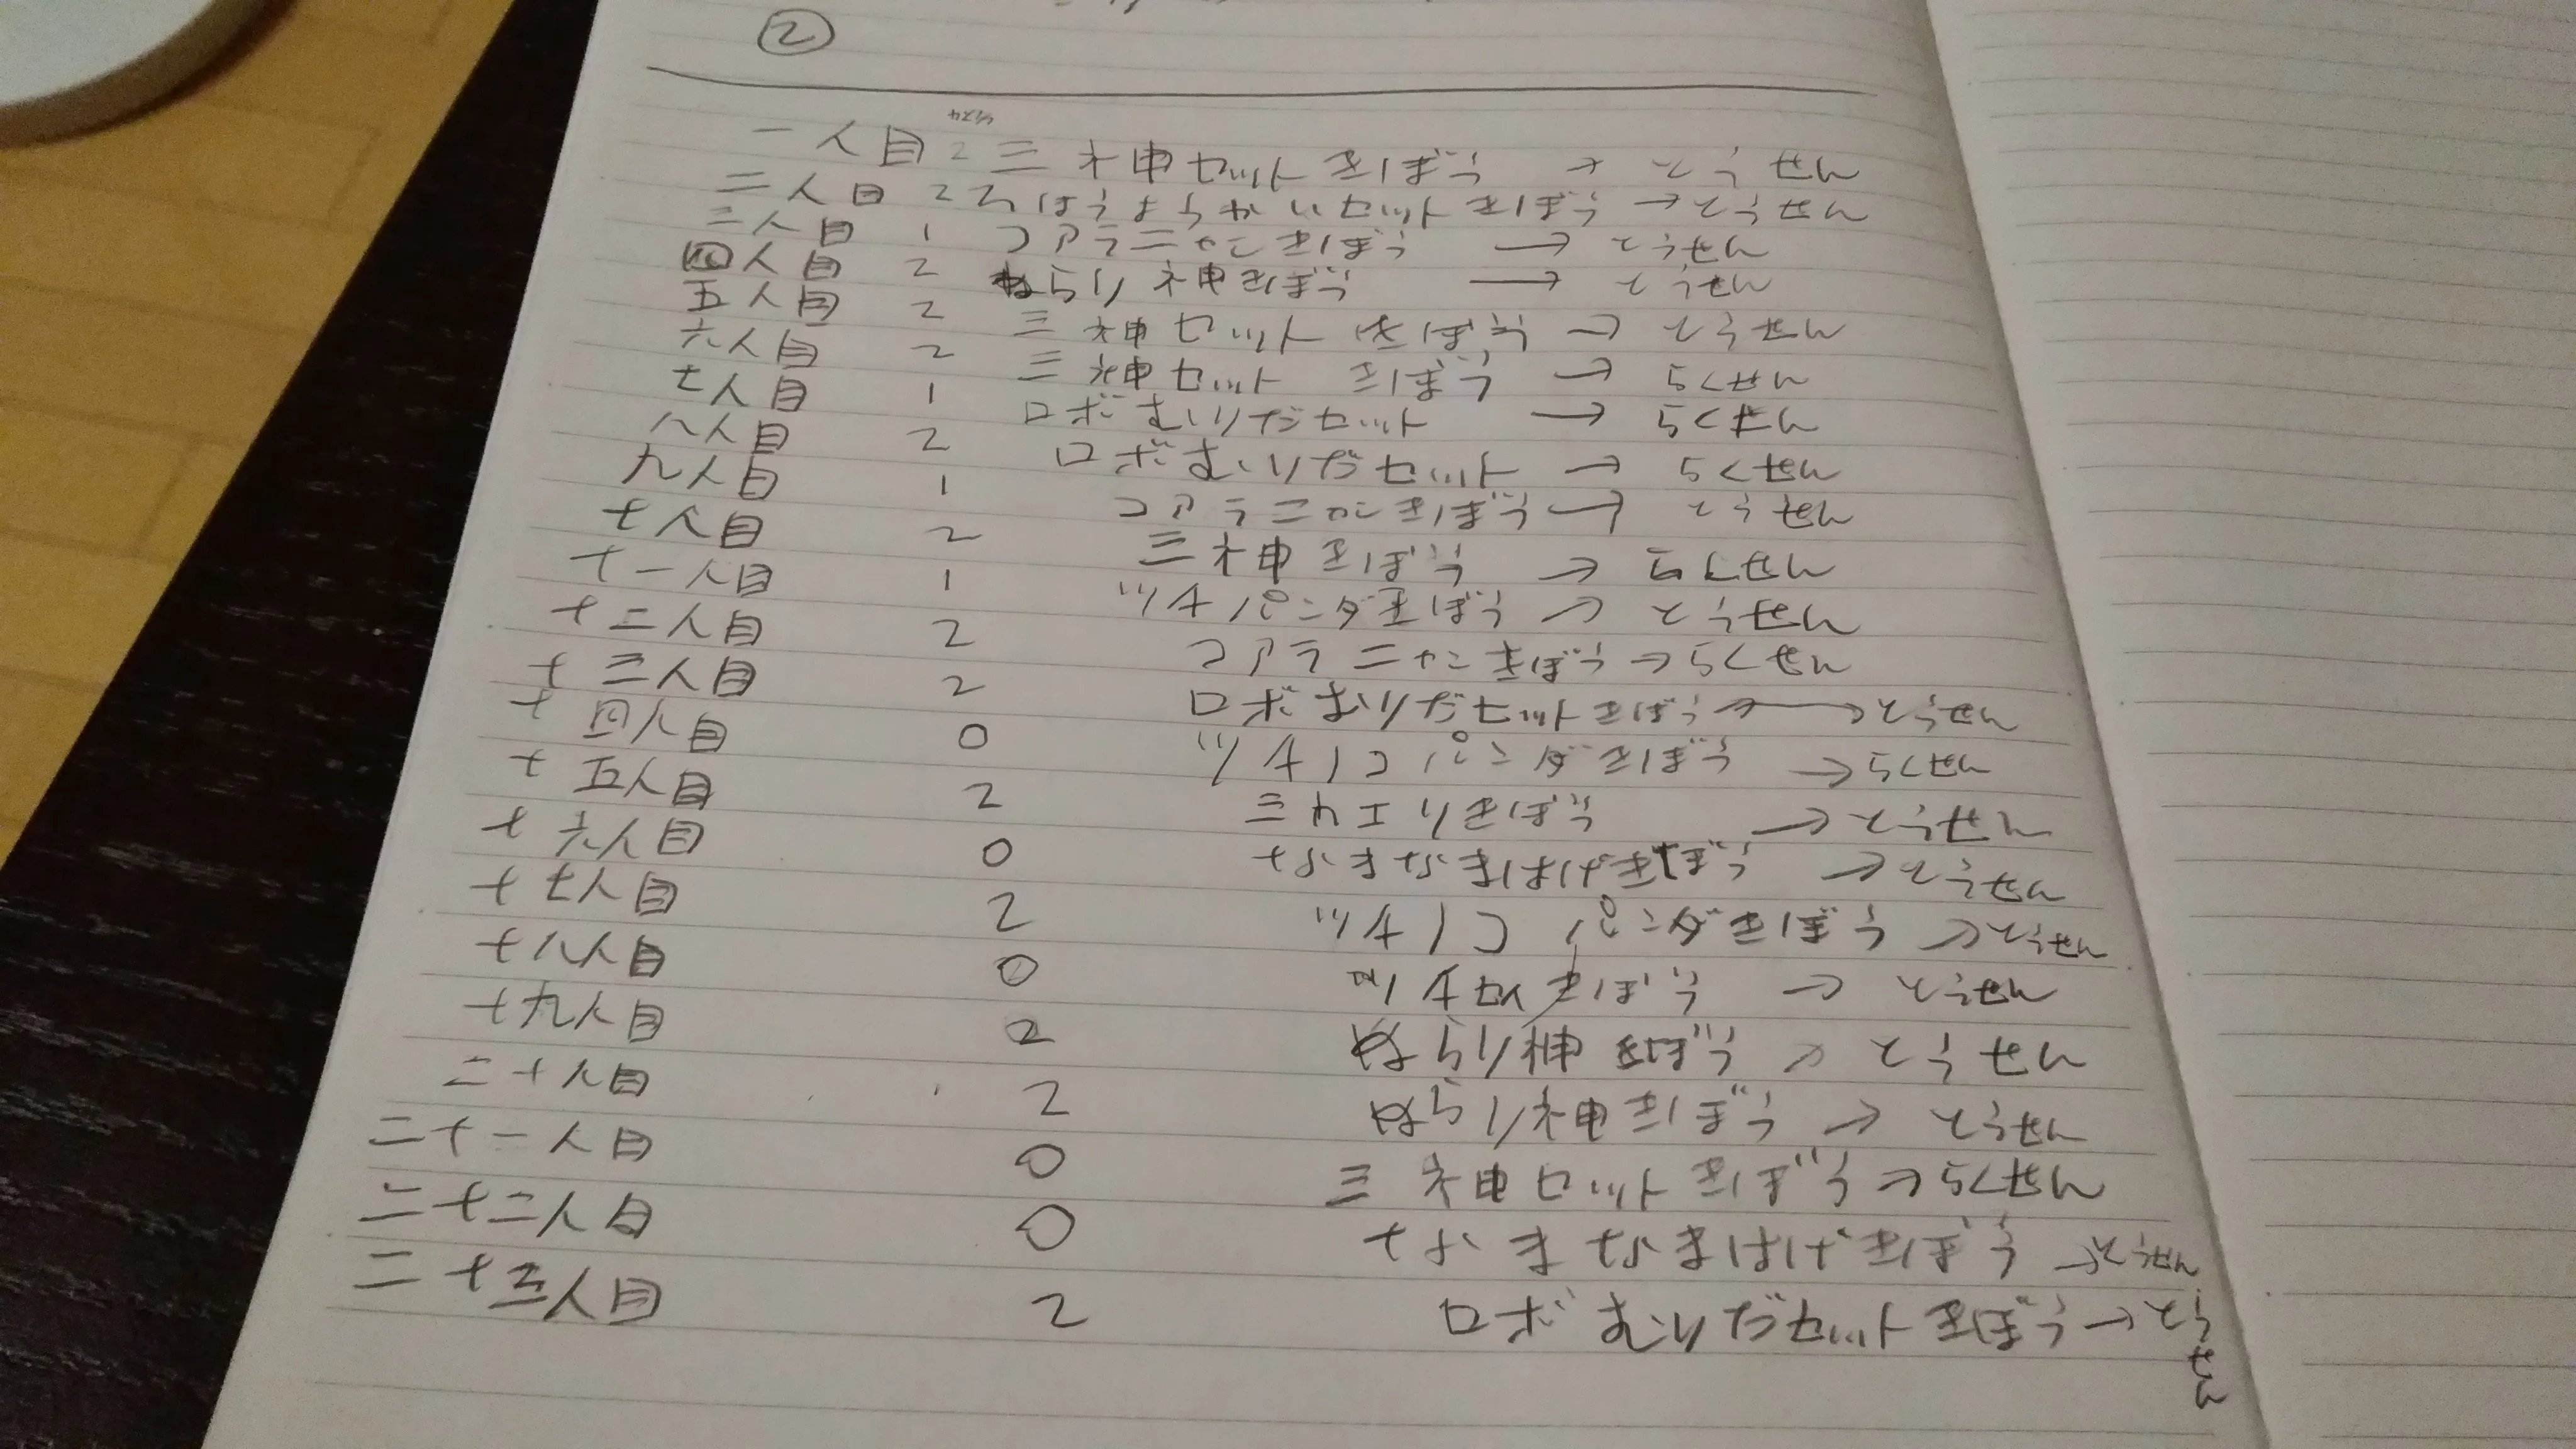 ②
一人目 2 三神セットきぼう → とうせん
二人目 2 ろほうようかいセットきぼう → とうせん
三人目 1 コアラニャンきぼう → とうせん
四人目 2 ぬらり神きぼう → とうせん
五人目 2 三神セットきぼう → とうせん
六人目 2 三神セットきぼう → らくせん
七人目 1 ロボむりだセット → らくせん
八人目 2 ロボむりだセット → らくせん
九人目 1 コアラニャンきぼう → とうせん
十人目 2 三神きぼう → らくせん
十一人目 1 ツチパンダきぼう → とうせん
十二人目 2 コアラニャンきぼう → らくせん
十三人目 2 ロボむりだセットきぼう → とうせん
十四人目 0 ツチノコパンダきぼう → らくせん
十五人目 2 ミカエリきぼう → とうせん
十六人目 0 なまなまはげきぼう → とうせん
十七人目 2 ツチノコパンダきぼう → とうせん
十八人目 0 きぼう → とうせん
十九人目 2 ぬらり神きぼう → とうせん
二十人目 2 ぬらり神きぼう → とうせん
二十一人目 0 三神セットきぼう → らくせん
二十二人目 0 なまなまはげきぼう → とうせん
二十三人目 2 ロボむりだセットきぼう → とうせん